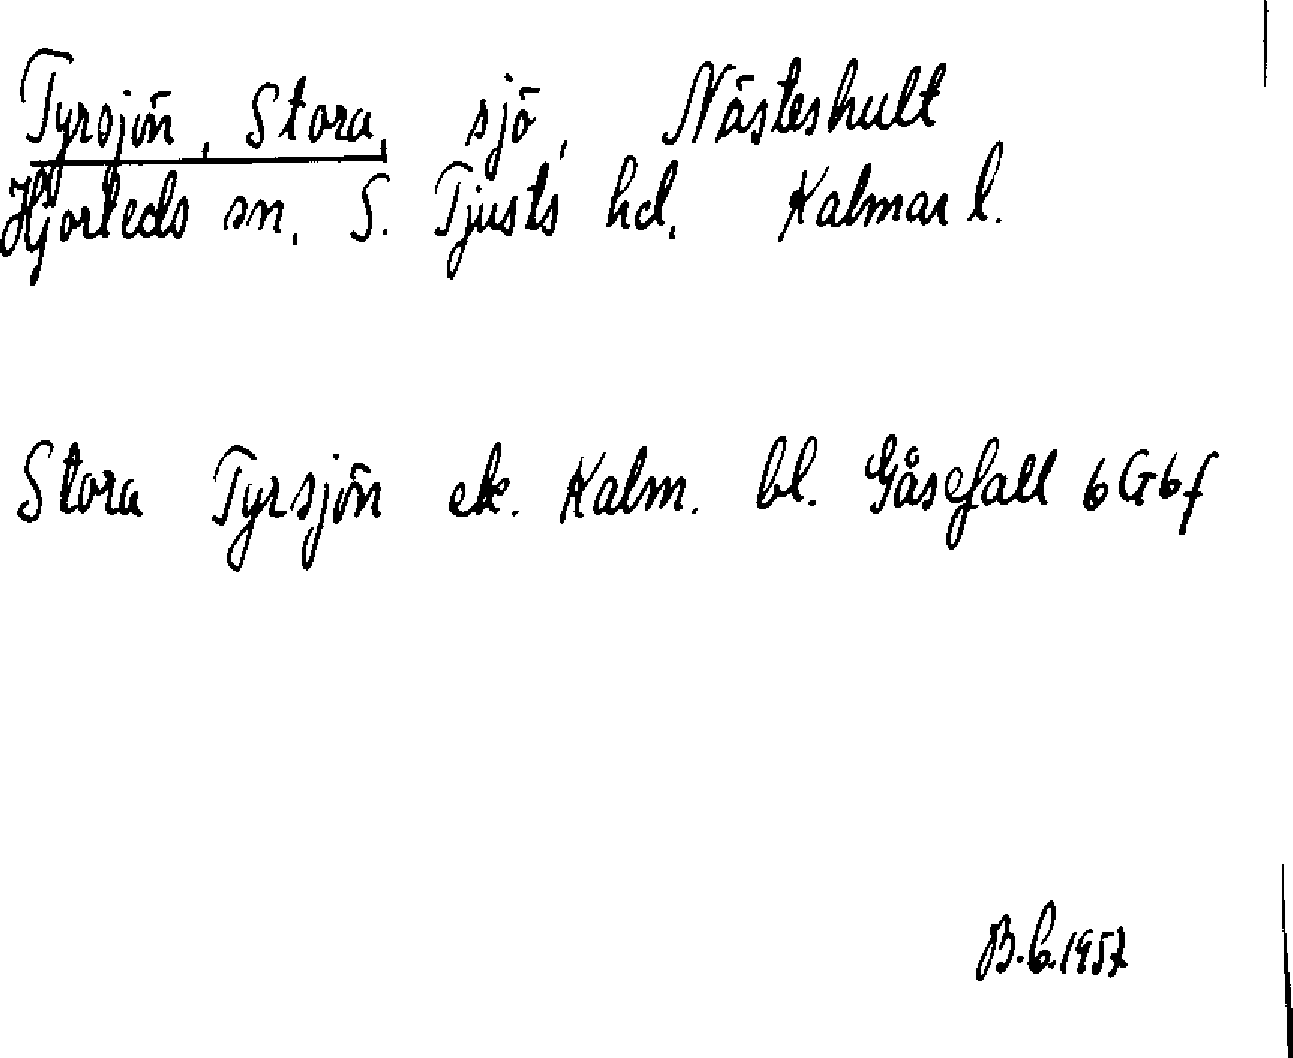 Tyrsjön, Stora, sjö, Nästeshult
Hjorteds sn. S. Tjusts hd. Kalmar l.
Stora Tyrsjön ek. Kalm. bl. Gåsefall 6G6f
B.C. 1957